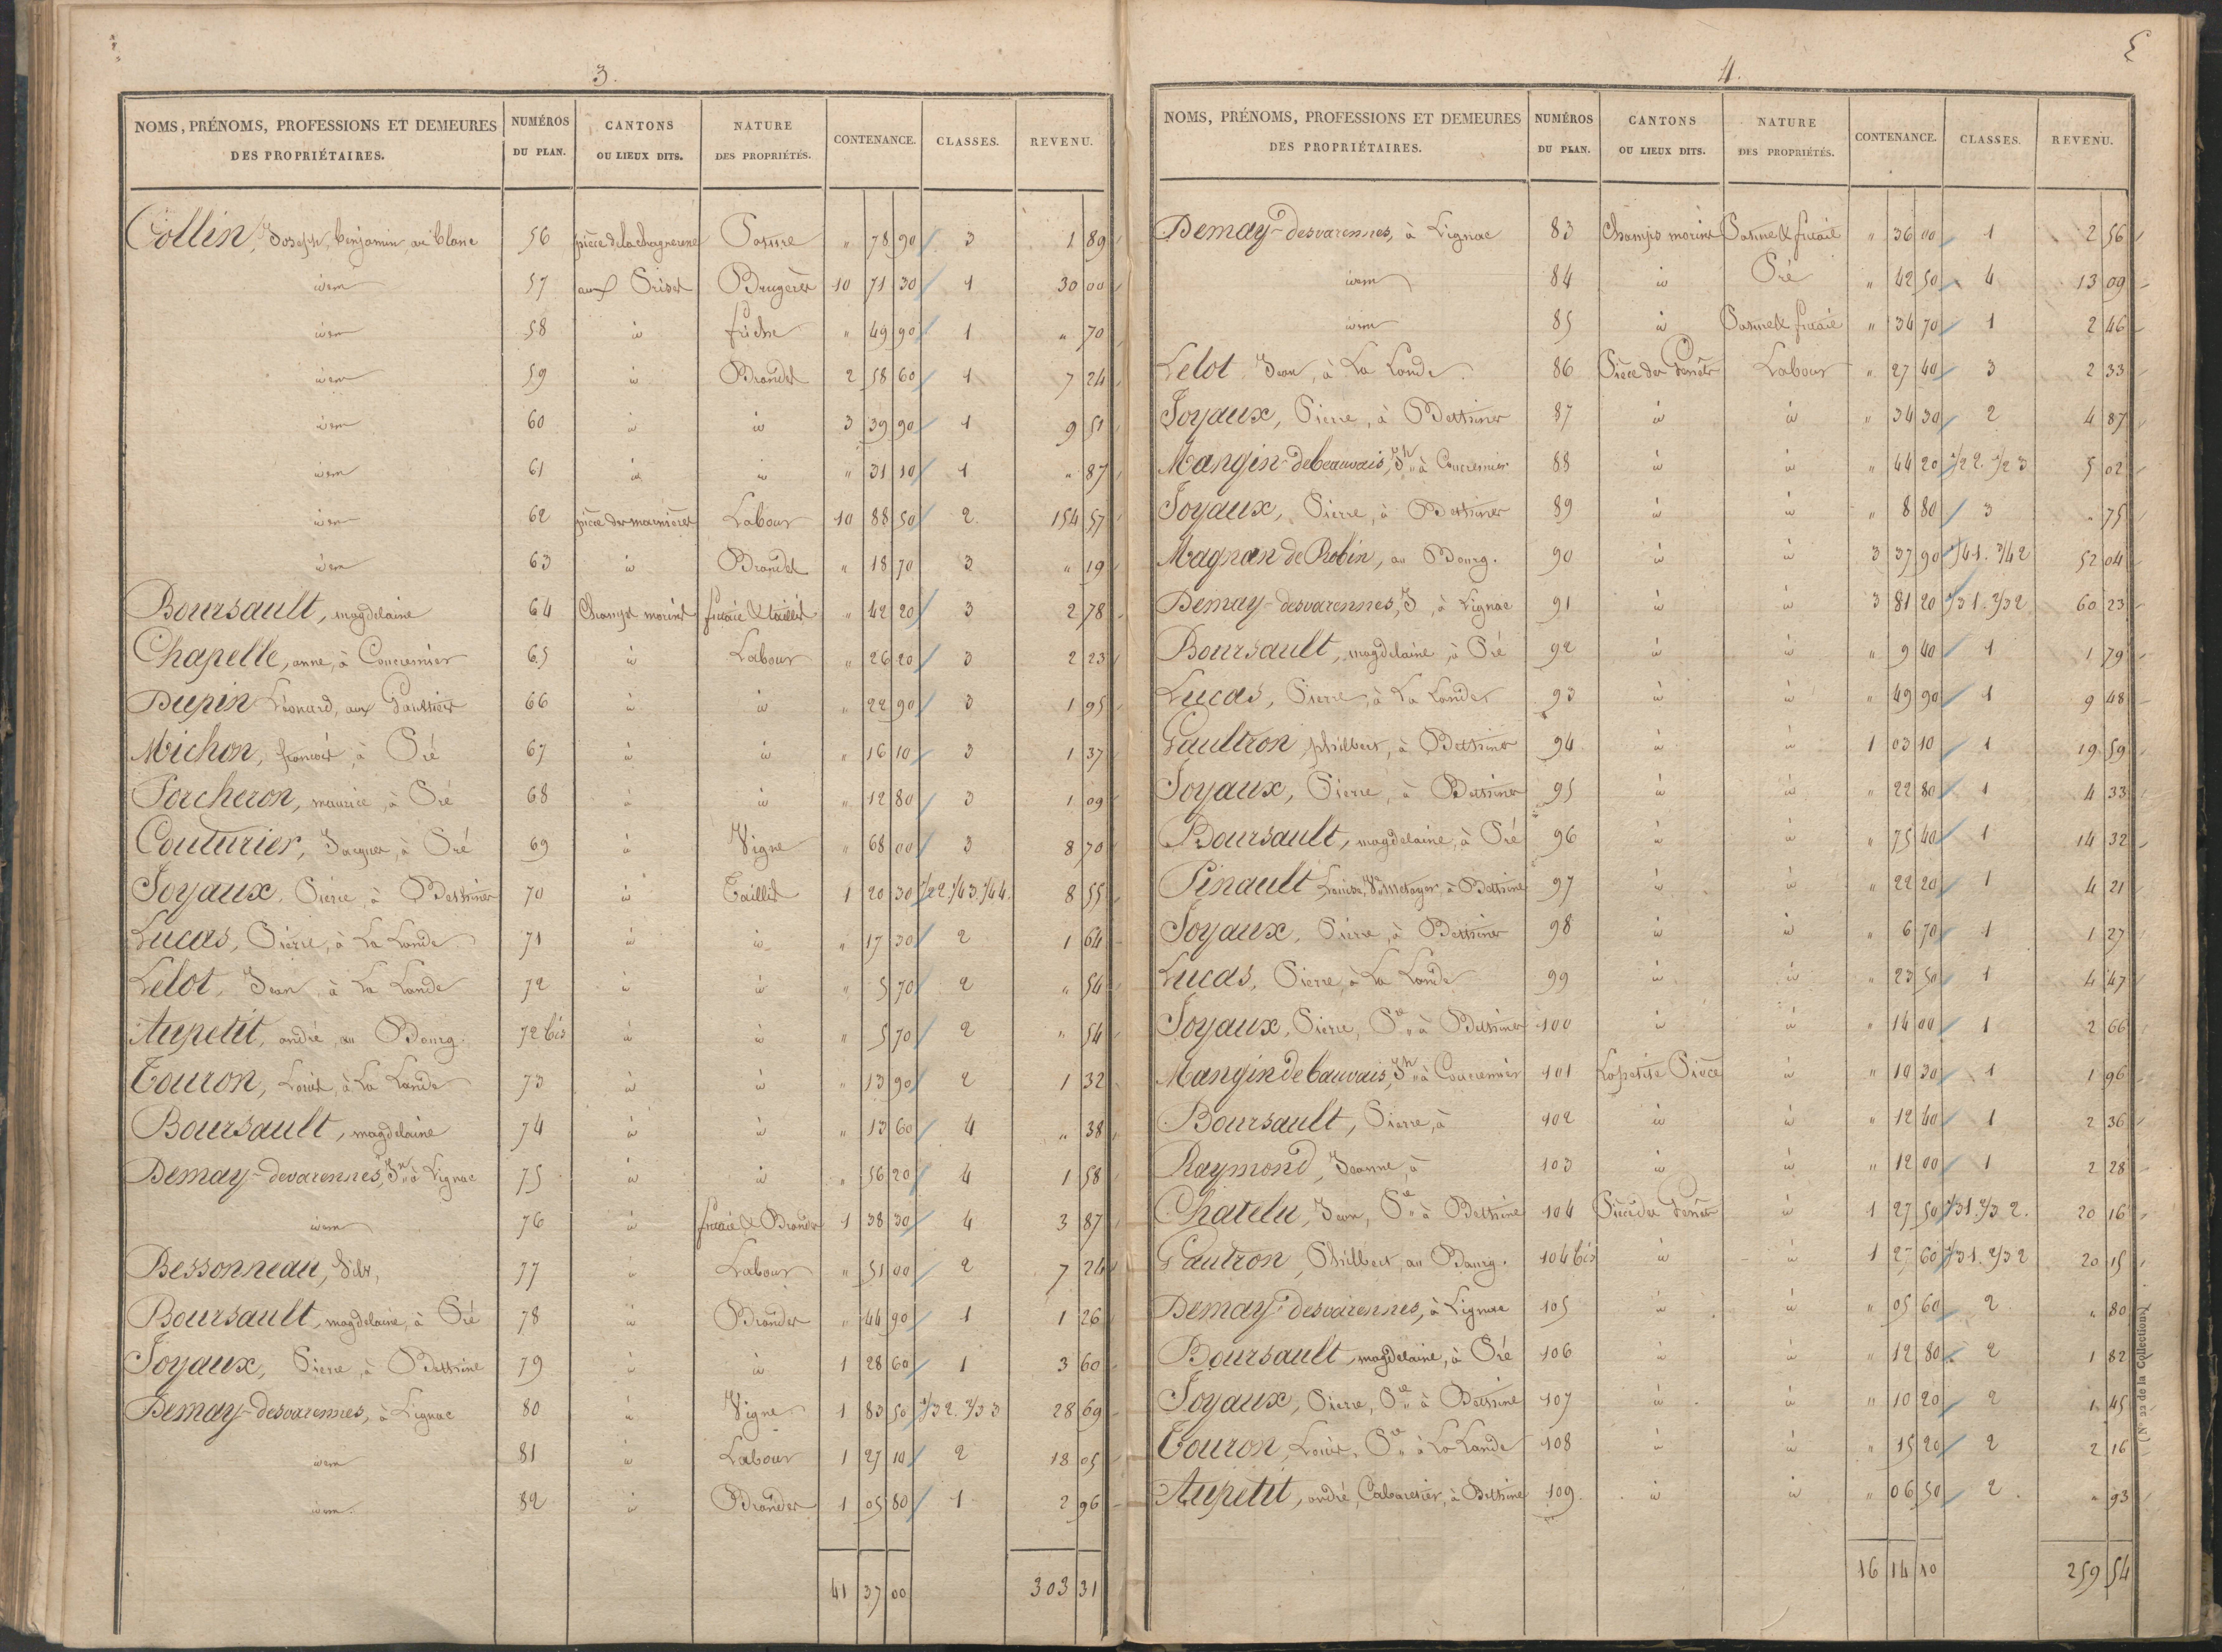 3.
NOMS, PRÉNOMS, PROFESSIONS ET DEMEURES DES PROPRIÉTAIRES. NUMÉROS DU PLAN. CANTONS OU LIEUX DITS. NATURE DES PROPRIÉTÉS. CONTENANCE. CLASSES. REVENU.
Collin, Joseph, benjamin, au blanc 56 pièce de la chagnerene Pature " 78 90 3 1 89
idem 57 aux Brugères 10 71 30 1 30 00
idem 58 id friche " 49 90 1 " 70
idem 59 id Brandes 2 58 60 1 7 24
idem 60 id id 3 39 90 1 9 51
idem 61 id id " 31 10 1 " 87
idem 62 pièce des Labour 10 88 50 2 154 57
idem 63 id Brandes " 18 70 3 " 19
Boursault, magdelaine 64 Champs morins futaie & taillis " 42 20 3 2 78
Chapelle, anne, à Concremier 65 id Labour " 26 20 3 2 23
Dupin Léonard, aux Gaultiers 66 id id " 22 90 3 1 95
Michon, françois, à Pré 67 id id " 16 10 3 1 37
Porcheron, maurice, à Pré 68 id id " 12 80 3 1 09
Couturier, Jacques, à Pré 69 id Vigne " 68 00 3 8 70
Joyaux, Pierre, à Bethines 70 id Taillis 1 20 30 1/22. 1/43. 1/44. 8 55
Lucas, Pierre, à La Lande 71 id id " 17 30 2 1 64
Lelot, Jean, à La Lande 72 id id " 5 70 2 " 54
Aupetit, andré, au Bourg. 72 bis id id " 5 70 2 " 54
Touron, Louis, à La Lande 73 id id " 13 90 2 1 32
Boursault, magdelaine 74 id id " 13 60 4 " 38
Demay-devarennes, Jn à Lignac 75 id id " 56 20 4 1 58
idem 76 id futaie & Brandes 1 38 30 4 3 87
Bessonneau, 77 id Labour " 51 00 2 7 24
Boursault, magdelaine, à Pré 78 id Brandes " 44 90 1 1 26
Joyaux, Pierre, à Bethine 79 id id 1 28 60 1 3 60
Demay-desvarennes, à Lignac 80 id Vigne 1 83 50 1/32. 2/33 28 69
idem 81 id Labour 1 27 10 2 18 05
idem 82 id Brandes 1 05 80 1 2 96
41 37 00 303 31
4.
NOMS, PRÉNOMS, PROFESSIONS ET DEMEURES DES PROPRIÉTAIRES. NUMÉROS DU PLAN. CANTONS OU LIEUX DITS. NATURE DES PROPRIÉTÉS. CONTENANCE. CLASSES. REVENU.
Demay-desvarennes, à Lignac 83 Champs morins Pature & futaie " 36 00 1 2 56
idem 84 id Pré " 42 50 4 13 09
idem 85 id Pature & futaie " 34 70 1 2 46
Lelot Jean, à La Lande 86 Pièce des Genêts Labour " 27 40 3 2 33
Joyaux, Pierre, à Bethines 87 id id " 34 30 2 4 87
Mangin-debeauvais, Jh à Concremier 88 id id " 44 20 1/22. 1/23 5 02
Joyaux, Pierre, à Bethines 89 id id " 8 80 3 " 75
Magnan de Robin, au Bourg. 90 id id 3 37 90 1/41. 3/42 52 04
Demay-desvarennes, J, à Lignac 91 id id 3 81 20 1/31. 2/32 60 23
Boursault, magdelaine, à Pré 92 id id " 9 40 1 1 79
Lucas, Pierre, à La Lande 93 id id " 49 90 1 9 48
Gaultron, philbert, à Bethines 94 id id 1 03 10 1 19 59
Joyaux, Pierre, à Bethines 95 id id " 22 80 1 4 33
Boursault, magdelaine, à Pré 96 id id " 75 40 1 14 32
Pinault Louise, Ve à Bethine 97 id id " 22 20 1 4 21
Joyaux, Pierre, à Bethines 98 id id " 6 70 1 1 27
Lucas, Pierre, à La Lande 99 id id " 23 50 1 4 47
Joyaux, Pierre, Pre à Bethines 100 id id " 14 00 1 2 66
Mangin de bauvais, Jh à Concremier 101 La petite Pièce id " 10 30 1 1 96
Boursault, Pierre, à 102 id id " 12 40 1 2 36
Raymond, Jeanne, à 103 id id " 12 00 1 2 28
Chatelu, Jean, Pre à Bethine 104 Pièce des Genêts id 1 27 50 1/31. 2/32. 20 16
Gautron, Philbert, au Bourg. 104 bis id id 1 27 60 1/31. 2/32 20 15
Demay-desvarennes, à Lignac 105 id id " 05 60 2 " 80
Boursault, magdelaine, à Pré 106 id id " 12 80 2 1 82
Joyaux, Pierre, Pre à Bethine 107 id id " 10 20 2 1 45
Touron, Louis, Pre à La Lande 108 id id " 15 20 2 2 16
Aupetit, andré, Cabaretier, à Bethine 109. id id " 06 50 2 " 93
16 14 10 259 54
(N° 22 de la Collection)